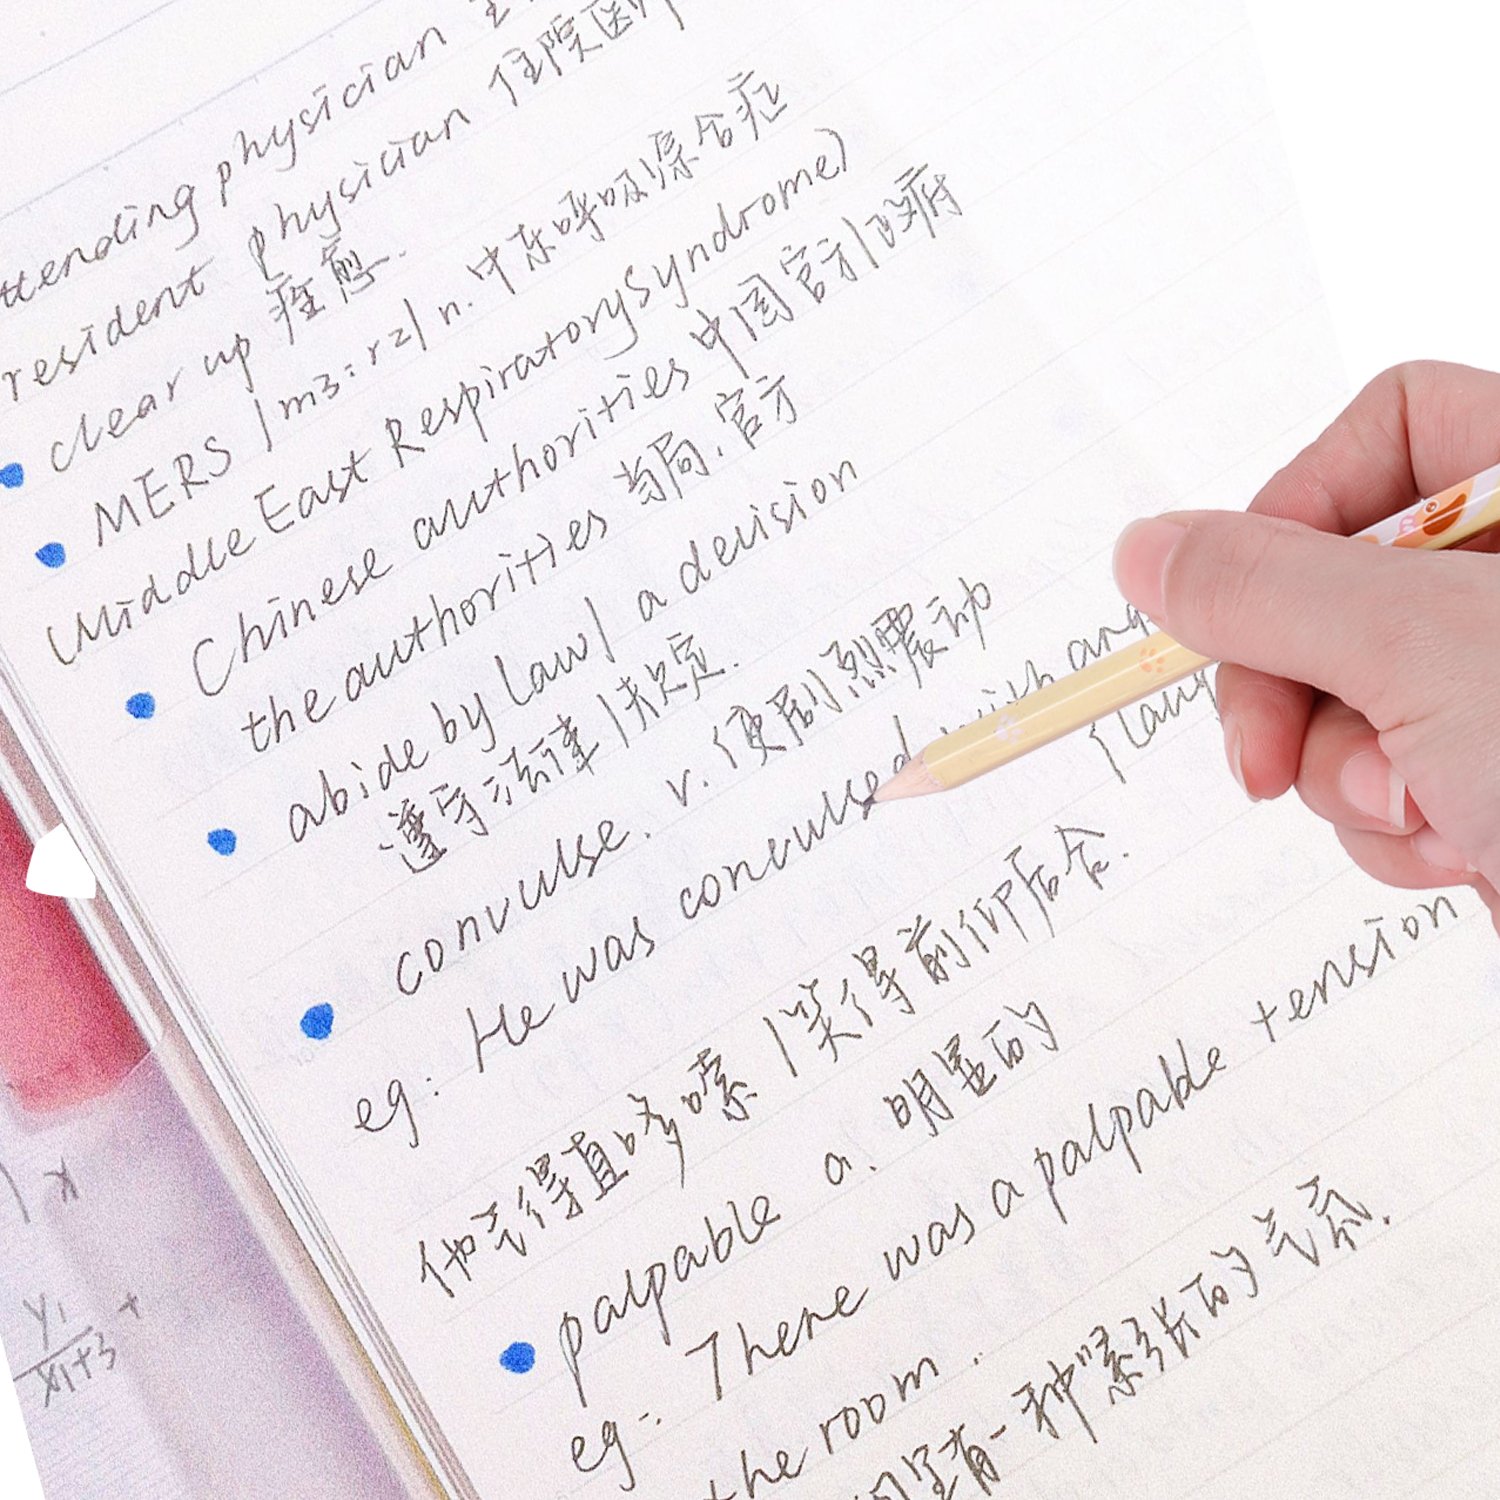 ttending physician
resident physician 住院医师
clear up 痊愈.
MERS |m3:rz| n. 中东呼吸综合症
(Middle East Respiratory Syndrome)
Chinese authorities 中国官方|政府
the authorities 当局.官方
abide by law| a decision
遵守法律|决定.
convulse. v. 使剧烈震动
eg: He was convulsed with ang
(laug
他气得直哆嗦|笑得前仰后合.
palpable a. 明显的
eg: There was a palpable tension
the room.
间里有一种紧张的气氛.
x
y1
x1+3 +